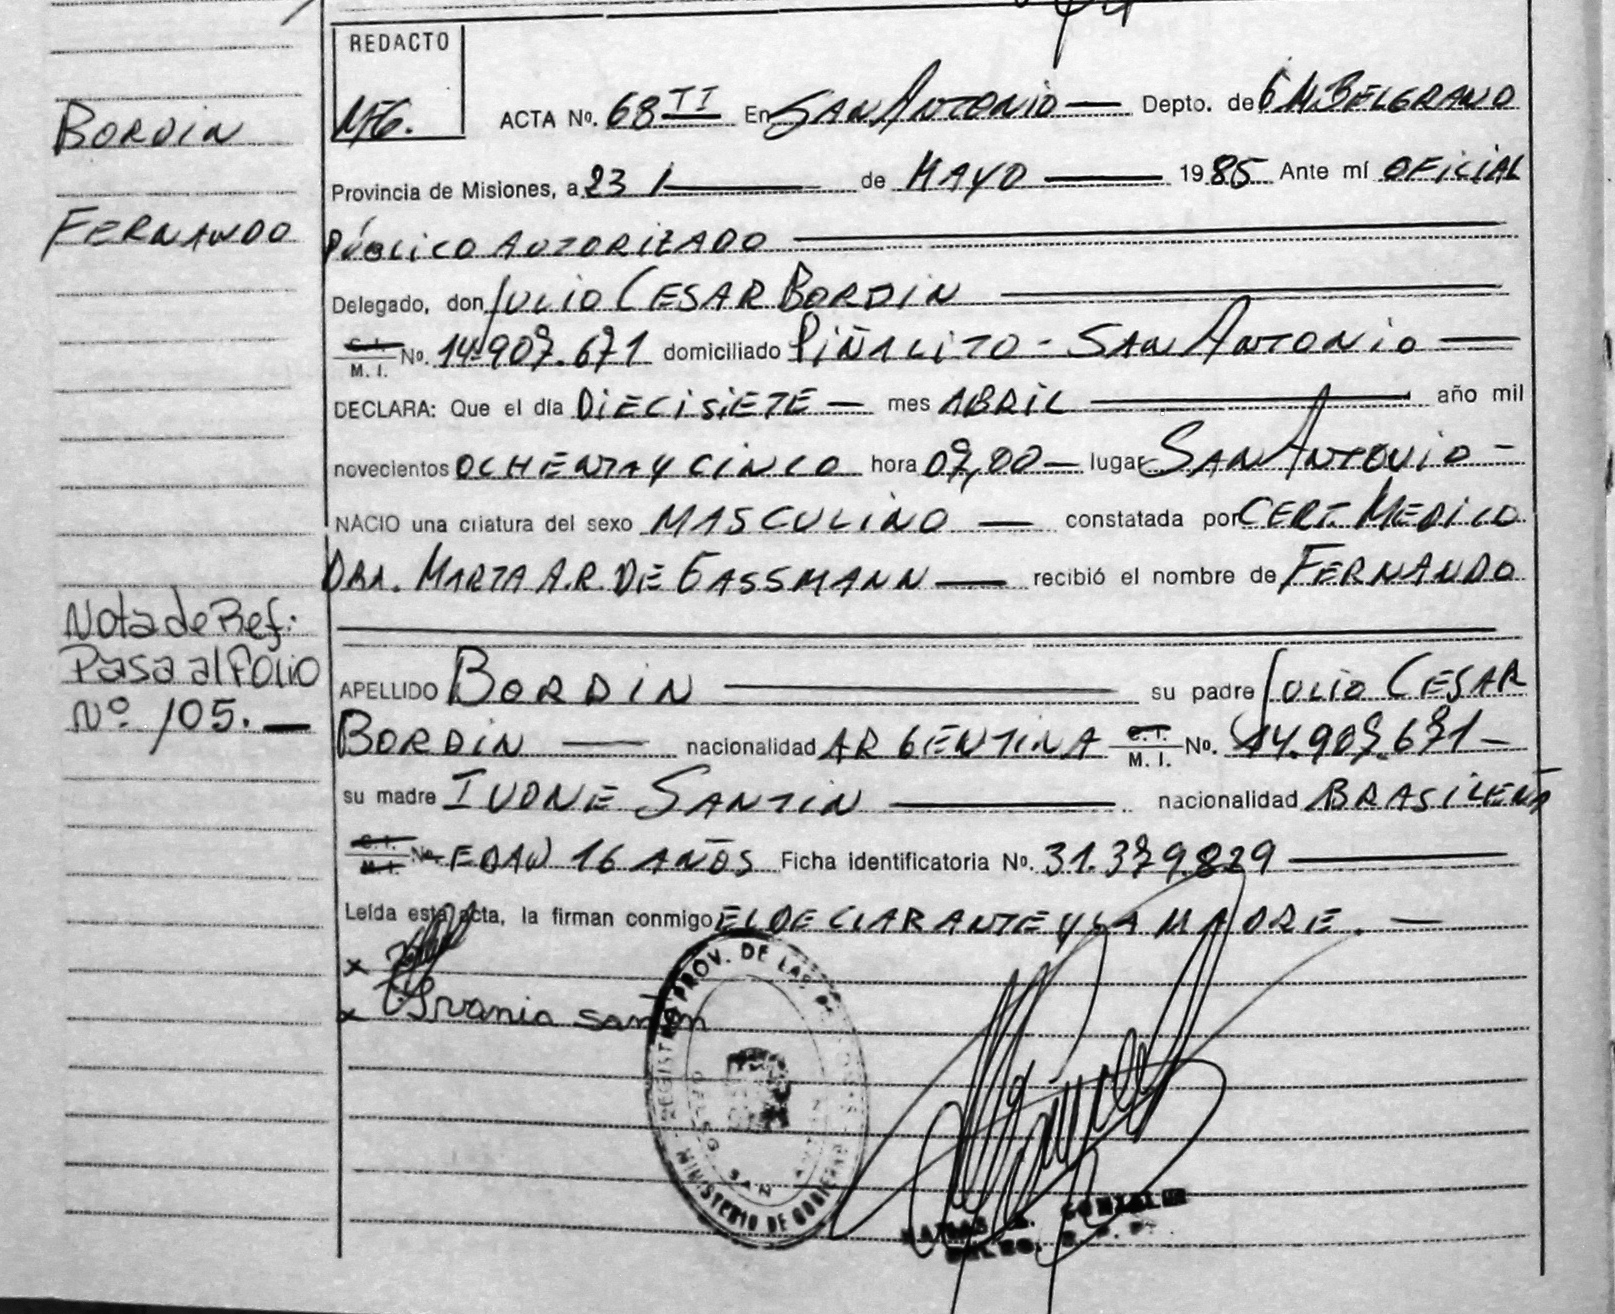 REDACTO
MFG.
BORDIN
FERNANDO
ACTA Nº. 68 TI En SAN ANTONIO — Depto. de G M. BELGRANO
Provincia de Misiones, a 23 / — de MAYO — 1985 Ante mí OFICIAL
PÚBLICO AUTORIZADO —
Delegado, don JULIO CESAR BORDIN —
C. I. / M. I. Nº. 14.907.671 domiciliado PIÑALITO - SAN ANTONIO —
DECLARA: Que el día DIECISIETE — mes ABRIL — año mil
novecientos OCHENTA Y CINCO hora 07,00 — lugar SAN ANTONIO -
NACIO una criatura del sexo MASCULINO — constatada por CERT. MEDICO
DRA. MARTA A.R. DE GASSMANN — recibió el nombre de FERNANDO
Nota de Ref:
Pasa al folio
Nº 105. —
APELLIDO BORDIN — su padre JULIO CESAR
BORDIN — nacionalidad ARGENTINA C. I. / M. I. Nº. 14.907.671 -
su madre IVONE SANTIN — nacionalidad BRASILEÑA
C. I. / M. I. Nº. EDAD 16 AÑOS Ficha identificatoria Nº. 31.379.829 —
Leída esta acta, la firman conmigo EL DECLARANTE Y LA MADRE. —
x
x Ivania Santin
REGISTRO PROV. DE LAS PERSONAS
MINISTERIO DE GOBIERNO
SAN